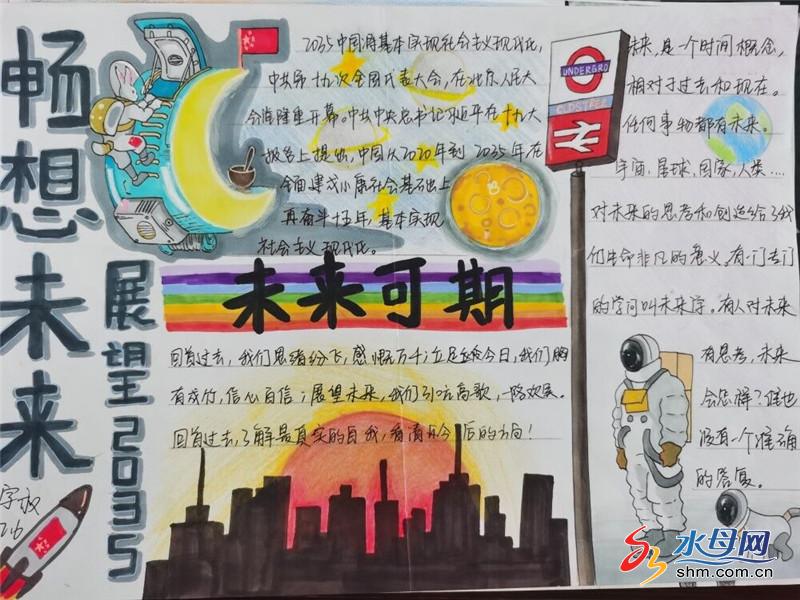 畅想未来
展望2035
2035中国将基本实现社会主义现代化,
中共第十九次全国代表大会,在北京人民大
会堂隆重开幕。中共中央总书记习近平在十九大
报告上提出,中国从2020年到2035年在
全面建成小康社会基础上
再奋斗十五年,基本实现
社会主义现代化。
未来可期
回首过去,我们思绪纷飞,感慨万千;立足今日,我们胸
有成竹,信心百倍;展望未来,我们引吭高歌,一路欢笑。
回首过去,了解最真实的自我,看清今后的方向!
UNDERGRO
未来,是一个时间概念,
相对于过去和现在。
任何事物都有未来。
宇宙,星球,国家,人类....
对未来的思考和创造给了我
们生命非凡的意义。有一门专门
的学问叫未来学。有人对未来
有思考,未来
会怎样?谁也
没有一个准确
的答复。
水母网
shm.com.cn